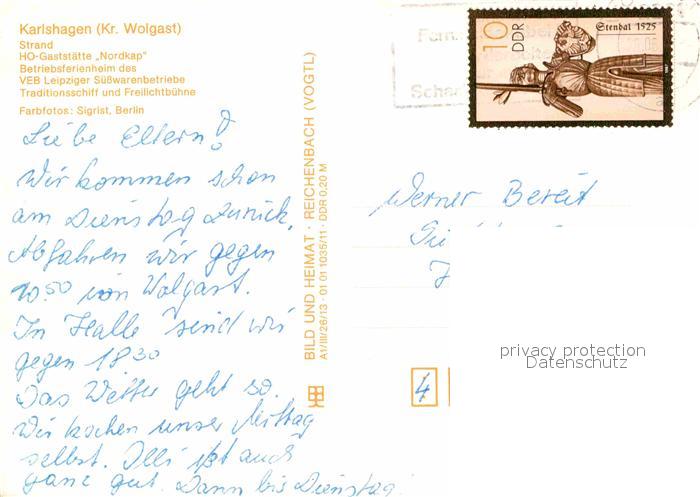 Karlshagen (Kr. Wolgast)
Strand
HO-Gaststätte „Nordkap"
Betriebsferienheim des
VEB Leipziger Süßwarenbetriebe
Traditionsschiff und Freilichtbühne
Farbfotos: Sigrist, Berlin
Liebe Eltern!
Wir kommen schon
am Dienstag zurück,
Abfahren wir gegen
10.50 von Wolgast.
In Halle sind wir
gegen 18 30
Das Wetter geht so.
Wir kochen unser Mittag
selbst. Illi ist auch
ganz gut. Dann bis Dienstag
BILD UND HEIMAT · REICHENBACH (VOGTL)
A1/III/26/13 · 01 01 1035/11 · DDR 0,20 M
10
DDR
Stendal 1525
Werner Bereit
4
privacy protection
Datenschutz